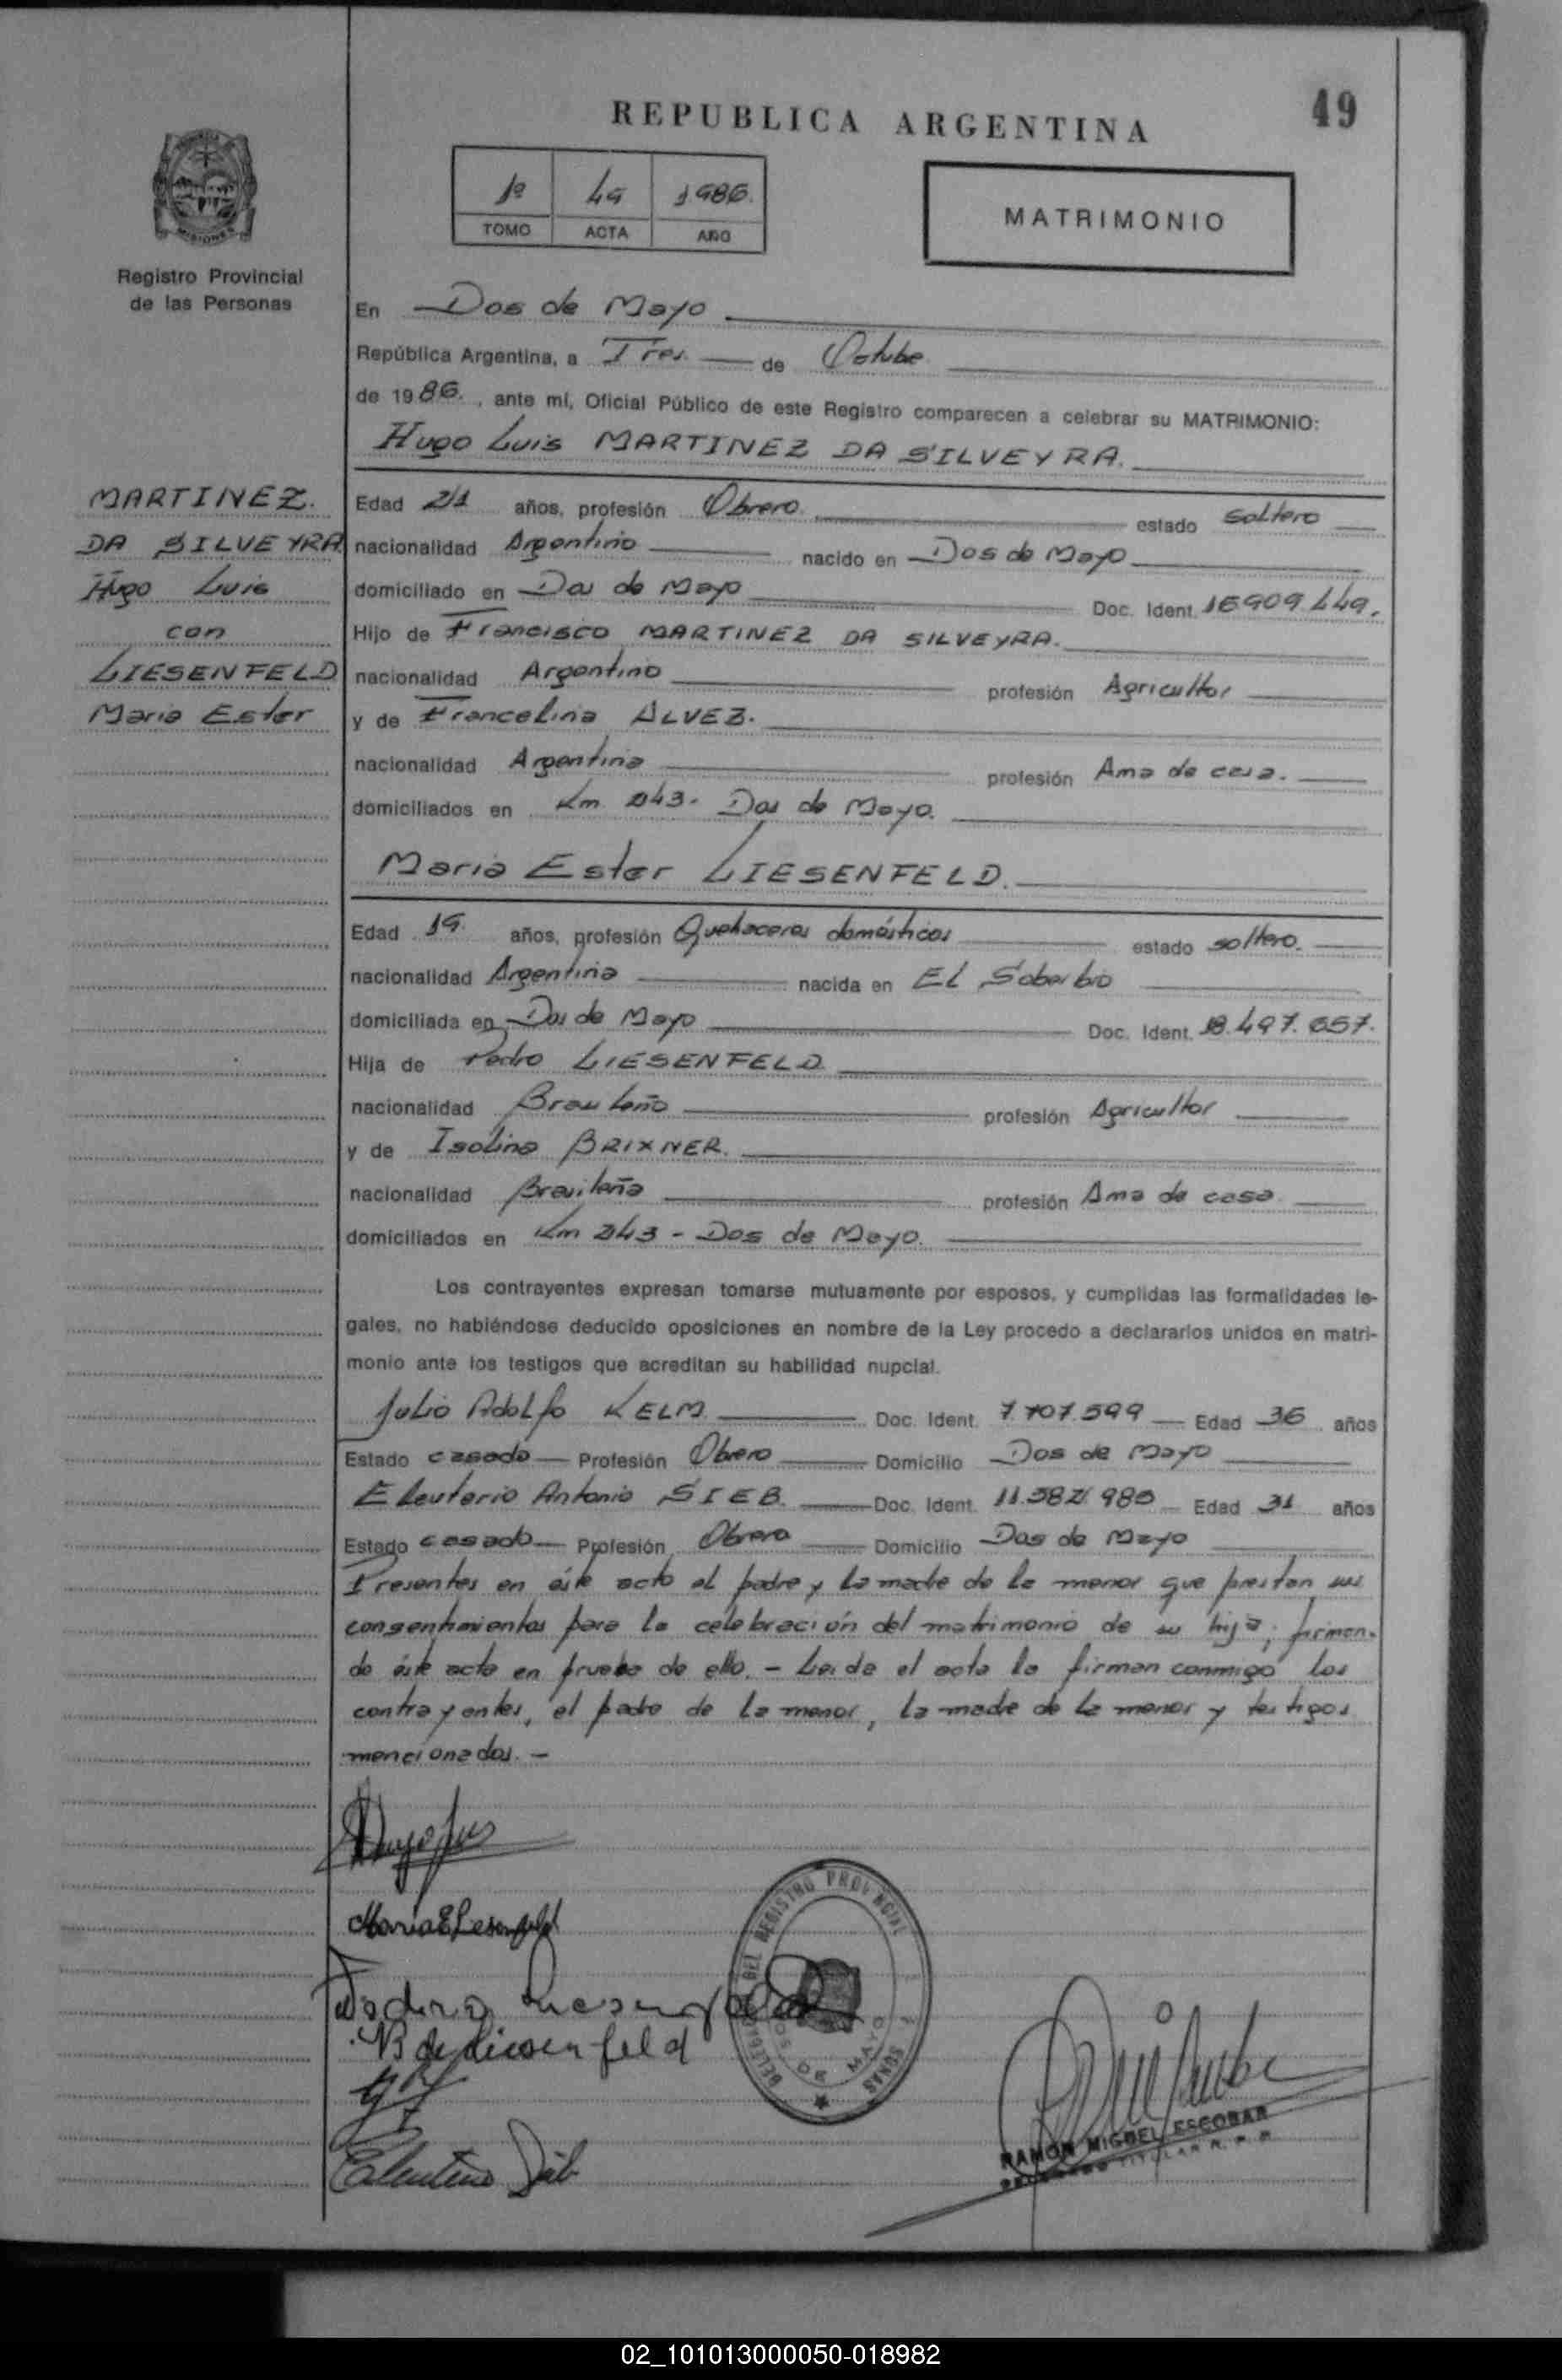 REPUBLICA ARGENTINA
49
1º 49 1986.
TOMO ACTA AÑO
MATRIMONIO
MISIONES
Registro Provincial
de las Personas
En Dos de Mayo
República Argentina, a Tres de Octubre
de 1986., ante mí, Oficial Público de este Registro comparecen a celebrar su MATRIMONIO:
Hugo Luis MARTINEZ DA SILVEYRA.
MARTINEZ.
DA SILVEYRA
Hugo Luis
con
LIESENFELD
Maria Ester
Edad 21 años, profesión Obrero. estado soltero
nacionalidad Argentino nacido en Dos de Mayo
domiciliado en Dos de Mayo Doc. Ident. 16.909.449.
Hijo de Francisco MARTINEZ DA SILVEYRA.
nacionalidad Argentino profesión Agricultor
y de Francelina ALVEZ.
nacionalidad Argentina profesión Ama de casa.
domiciliados en Km. 243. Dos de Mayo.
Maria Ester LIESENFELD.
Edad 19. años, profesión Quehaceres domésticos estado soltero.
nacionalidad Argentina nacida en El Soberbio
domiciliada en Dos de Mayo Doc. Ident. 18.497.657.
Hija de Pedro LIESENFELD
nacionalidad Brasileño profesión Agricultor
y de Isolina BRIXNER.
nacionalidad Brasileña profesión Ama de casa
domiciliados en Km 243 - Dos de Mayo.
Los contrayentes expresan tomarse mutuamente por esposos, y cumplidas las formalidades le-
gales, no habiéndose deducido oposiciones en nombre de la Ley procedo a declararlos unidos en matri-
monio ante los testigos que acreditan su habilidad nupcial.
Julio Adolfo KELM. Doc. Ident. 7.707.599 Edad 36 años
Estado casado Profesión Obrero Domicilio Dos de Mayo
Eleuterio Antonio SIEB. Doc. Ident. 11.582.985 Edad 31 años
Estado casado Profesión Obrero Domicilio Dos de Mayo
Presentes en éste acto el padre y la madre de la menor que prestan sus
consentimientos para la celebración del matrimonio de su hija, firman-
do éste acto en prueba de ello. - Leída el acta la firman conmigo los
contrayentes, el padre de la menor, la madre de la menor y testigos
mencionados. -
Hugo Luis
Maria E Lesenfeld
B de Liesenfeld
DEL REGISTRO PROVINCIAL
DOS DE MAYO
RAMON MIGUEL ESCOBAR
TITULAR R. P. P.
02_101013000050-018982